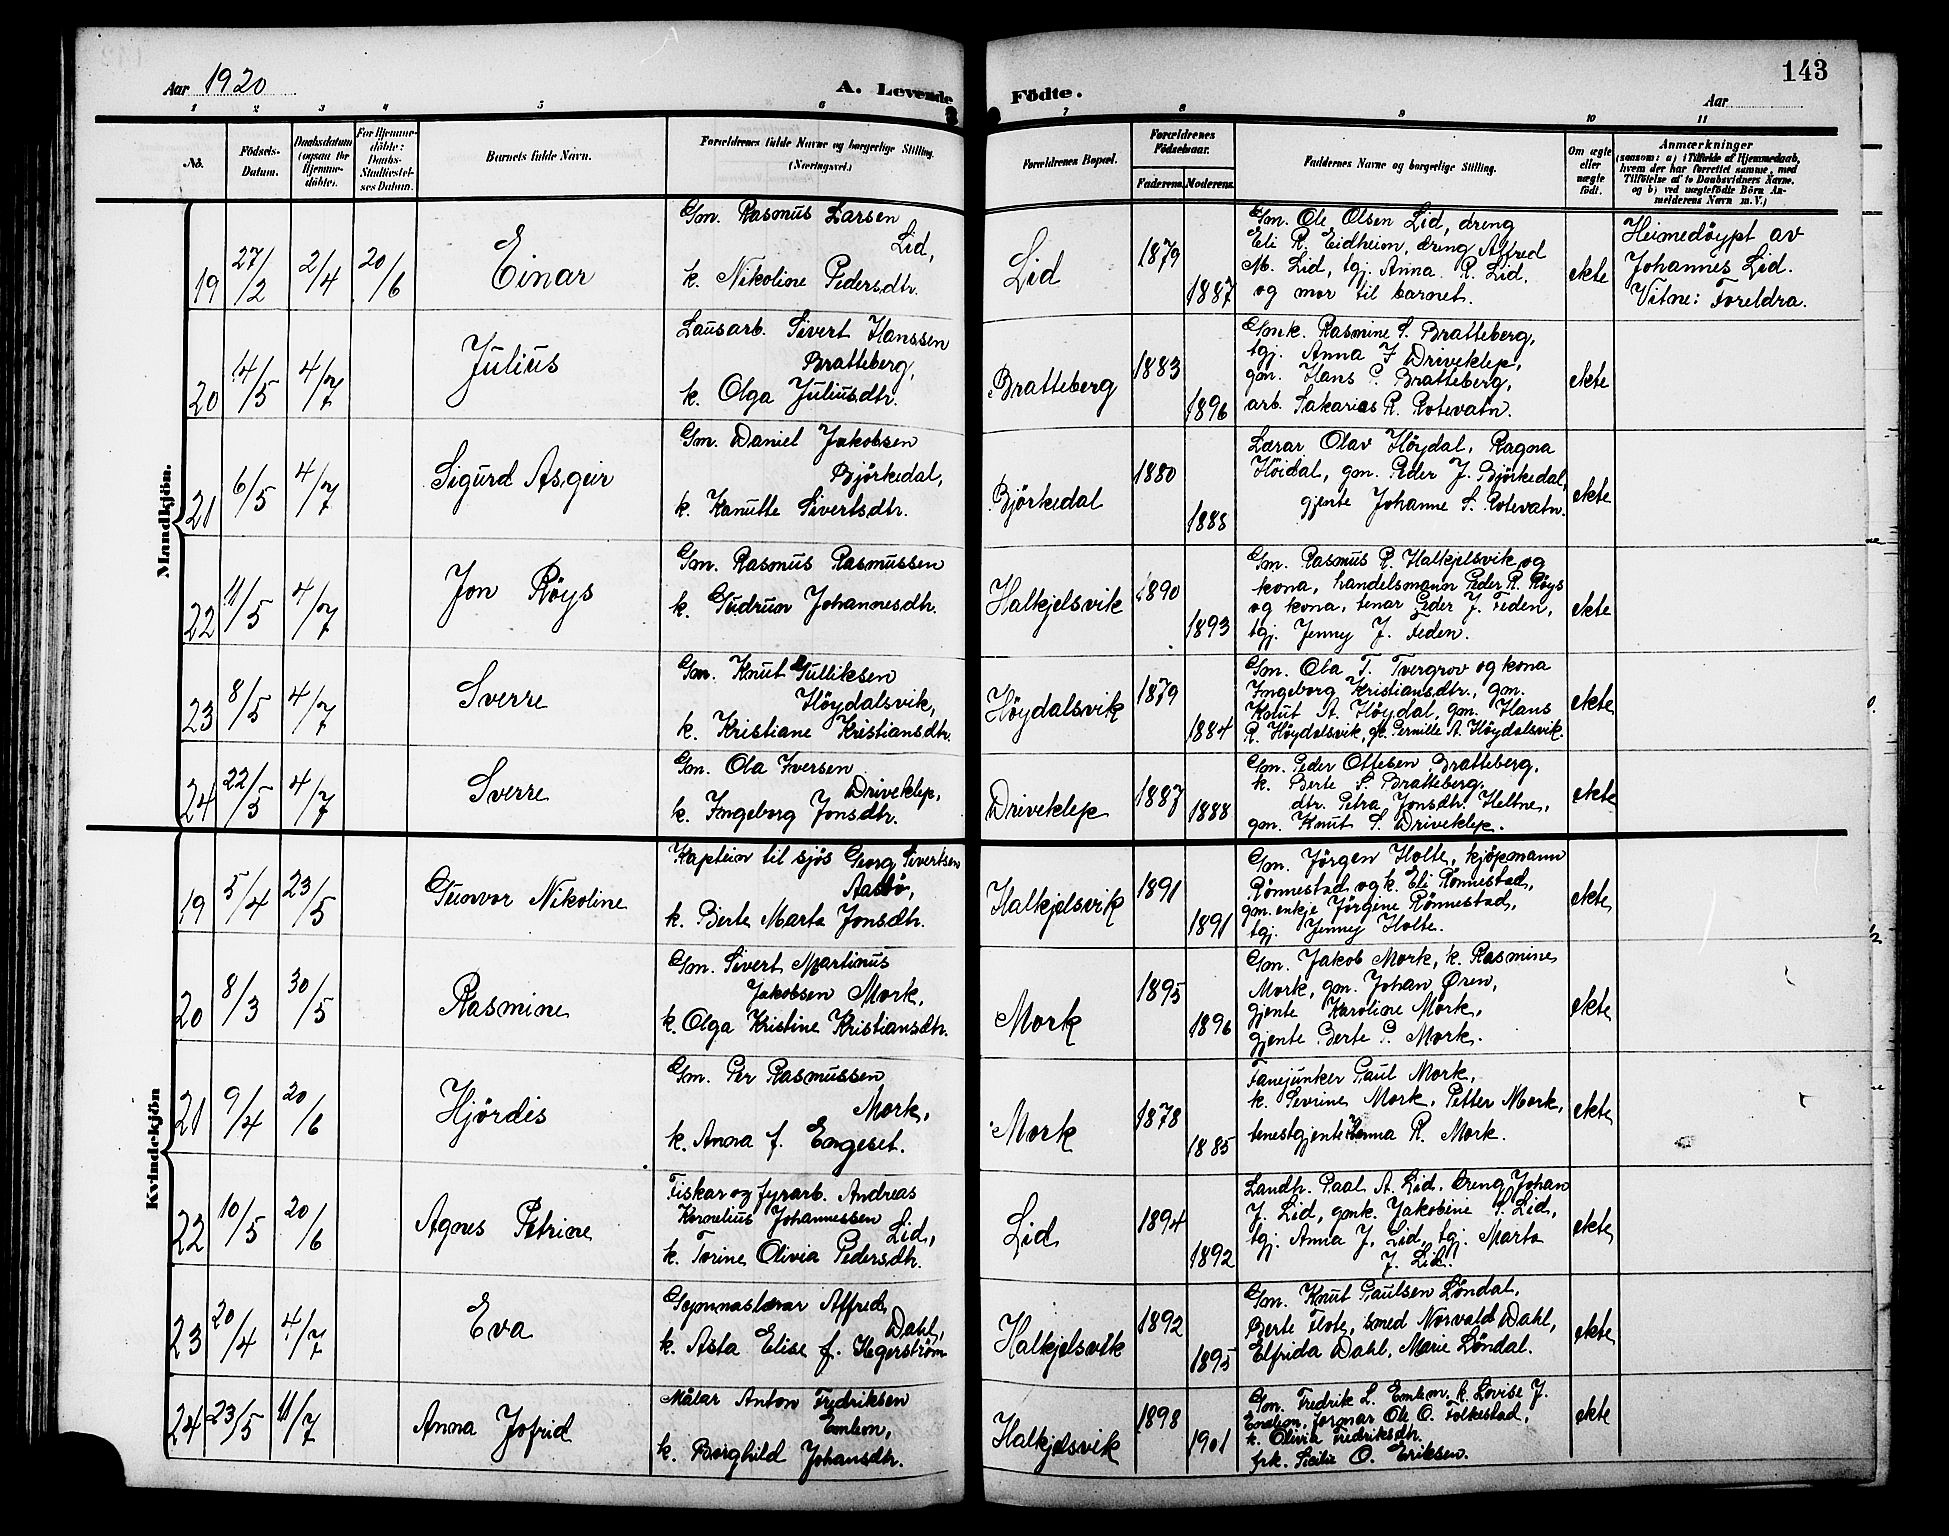 143
Aar 1920
A. Levende Födte.
Aar
1 2 3 4 5 6 7 8 9 10 11
No.
Födsels-
Datum.
Daabsdatum
(ogsaa for
Hjemme-
döbte).
For Hjemme-
döbte:
Daabs-
Stadfæstel-
ses Datum.
Barnets fulde Navn.
Forældrenes fulde Navne og borgerlige Stilling.
(Næringsvei.)
Forældrenes Bopæl.
Forældrenes
Födselsaar.
Faderens.
Moderens.
Faddernes Navne og borgerlige Stilling.
Om ægte
eller
uægte
født.
Anmærkninger
(saasom: a) i Tilfælde af Hjemmedaab,
hvem der har forrettet samme, med
Tilföielse af to Daabsvidners Navne,
og b) ved uægtefödte Börn An-
melderens Navn m. V.)
Mandkjön.
19 27/2 2/4 20/6 Einar
Gm. Rasmus Larsen
Lid,
k. Nikoline Pedersdtr.
Lid 1879 1887
Gm. Ole Olsen Lid, dreng
Eli R. Eidheim, dreng Alfred
M. Lid, tgj. Anna R. Lid,
og mor til barnet.
ekte
Heimedöypt av
Johannes Lid.
Vitne: Foreldra.
20 14/5 4/7 Julius
Lausarb. Sivert Hanssen
Bratteberg,
k. Olga Juliusdtr.
Bratteberg 1883 1896
Gmk. Rasmine S. Bratteberg,
tgj. Anna J Driveklep,
gm. Hans P. Bratteberg,
arb. Sakarias R. Rotevatn.
ekte
21 6/5 4/7 Sigurd Asgeir
Gm. Daniel Jakobsen
Björkedal,
k. Kanutte Sivertsdtr.
Björkedal 1880 1888
Lærar Olav Höydal, Ragna
Höidal, gm. Peder J. Björkedal,
gjente Johanne S. Rotevatn.
ekte
22 11/5 4/7 Jon Röys
Gm. Rasmus Rasmussen
k. Gudrun Johannesdtr.
Halkjelsvik 1890 1893
Gm. Rasmus R. Halkjelsvik og
kona, handelsmann Peder R. Röys
og kona, tenar Peder J. Feden,
tgj. Jenny J. Feden.
ekte
23 8/5 4/7 Sverre
Gm. Knut Gulliksen
Höydalsvik,
k. Kristiane Kristiansdtr.
Höydalsvik 1879 1884
Gm. Ola T. Tvergrov og kona
Ingeborg Kristiansdtr., gm.
Knut A. Höydal, gm. Hans
R. Höydalsvik, gk. Pernille A. Höydalsvik.
ekte
24 22/5 4/7 Sverre
Gm. Ola Iversen
Driveklep,
k. Ingeborg Jonsdtr.
Driveklep 1887 1888
Gm. Peder Ottesen Bratteberg,
k. Berte S. Bratteberg,
dtr. Petra Jonsdtr. Heltne,
gm. Knut S. Driveklep.
ekte
Kvindekjön
19 5/4 23/5 Gunvor Nikoline
Kaptein til sjös Georg Sivertsen
Aasbö,
k. Berte Marta Jonsdtr.
Halkjelsvik 1891 1891
Gm. Jörgen Holte, kjöpmann
Rönnestad og k. Eli Rönnestad,
gm. enkje Jörgine Rönnestad,
tgj. Jenny Holte.
ekte
20 8/3 30/5 Rasmine
Gm. Sivert Martinus
Jakobsen Mork,
k. Olga Kristine Kristiansdtr.
Mork 1895 1896
Gm. Jakob Mork, k. Rasmine
Mork, gm. Johan Øren,
gjente Karoline Mork,
gjente Berte P. Mork.
ekte
21 9/4 20/6 Hjördis
Gm. Per Rasmussen
Mork,
k. Anna f. Engeset.
Mork 1878 1885
Fanejunker Paul Mork,
k. Sevrine Mork, Petter Mork,
tenestgjente Anna R. Mork.
ekte
22 10/5 20/6 Agnes Petrine
Fiskar og fyrarb. Andreas
Kornelius Johannessen
Lid,
k. Torine Olivia Pedersdtr.
Lid 1894 1892
Landh. Paal A. Lid. Dreng Johan
J. Lid, gmk. Jakobine S. Lid,
tgj. Anna J. Lid, tgj. Marta
J. Lid.
ekte
23 20/4 4/7 Eva
Gymnaslærar Alfred
Dahl,
k. Asta Elise f. Hegerström
Halkjelsvik 1892 1895
Gm. Knut Paulsen Løndal,
Berte Flote, smed Norvald Dahl,
Elfrida Dahl, Marie Løndal.
ekte
24 23/5 11/7 Anna Jofrid
Målar Anton Fredriksen
Emlem,
k. Borghild Johansdtr.
Halkjelsvik 1898 1901
Gm. Fredrik L. Emlem, k. Lovise J.
Emlem, formar Ole O. Folkestad,
k. Olivia Fredriksdtr.
frk. Sicilie O. Eriksen.
ekte